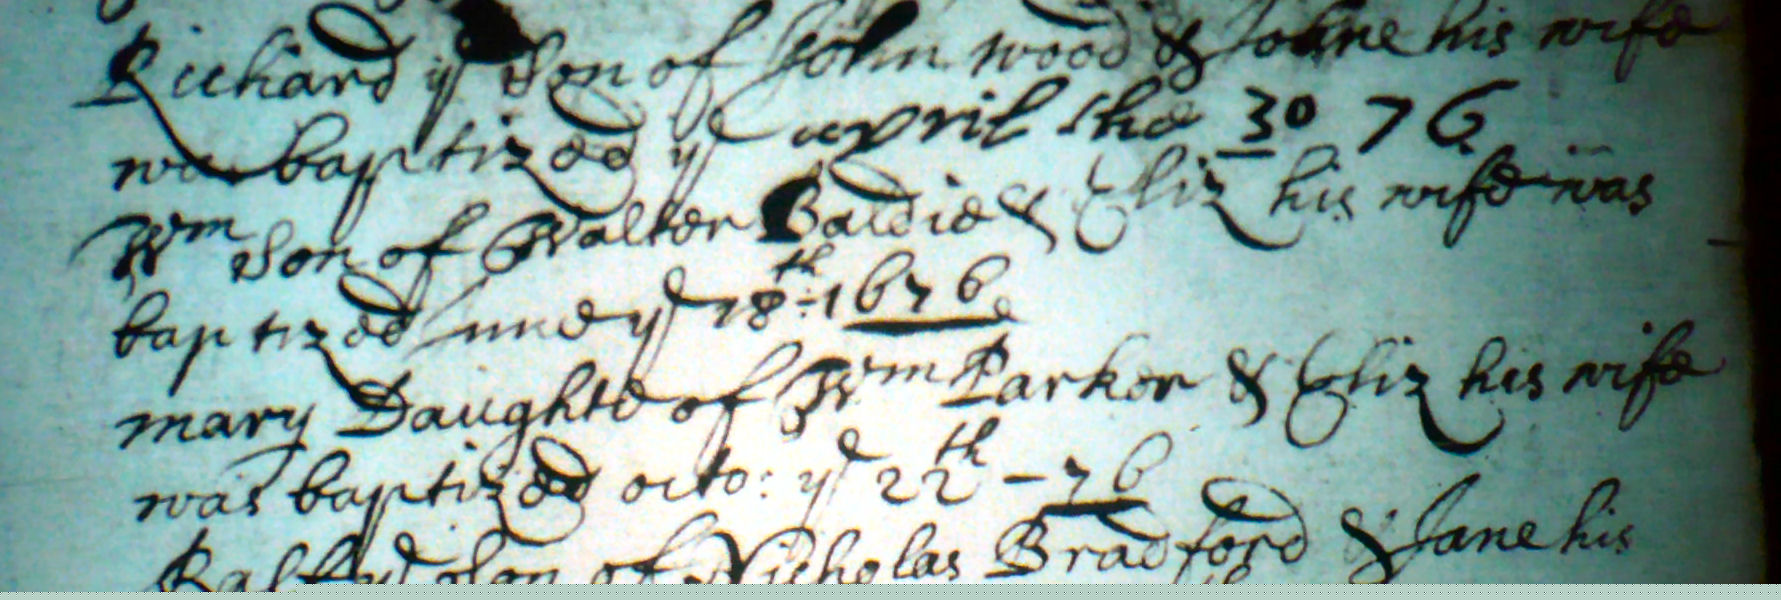 Richard ye Son of John wood & Johne his wife
was baptized ye april the 30 76
Wm Son of Walter Baldie & Eliz his wife was
baptized June ye 18th: 1676
mary Daughte of Wm Parker & Eliz his wife
was baptized octo: ye 22th - 76
Ralph ye Son of Nicholas Bradford & Jane his